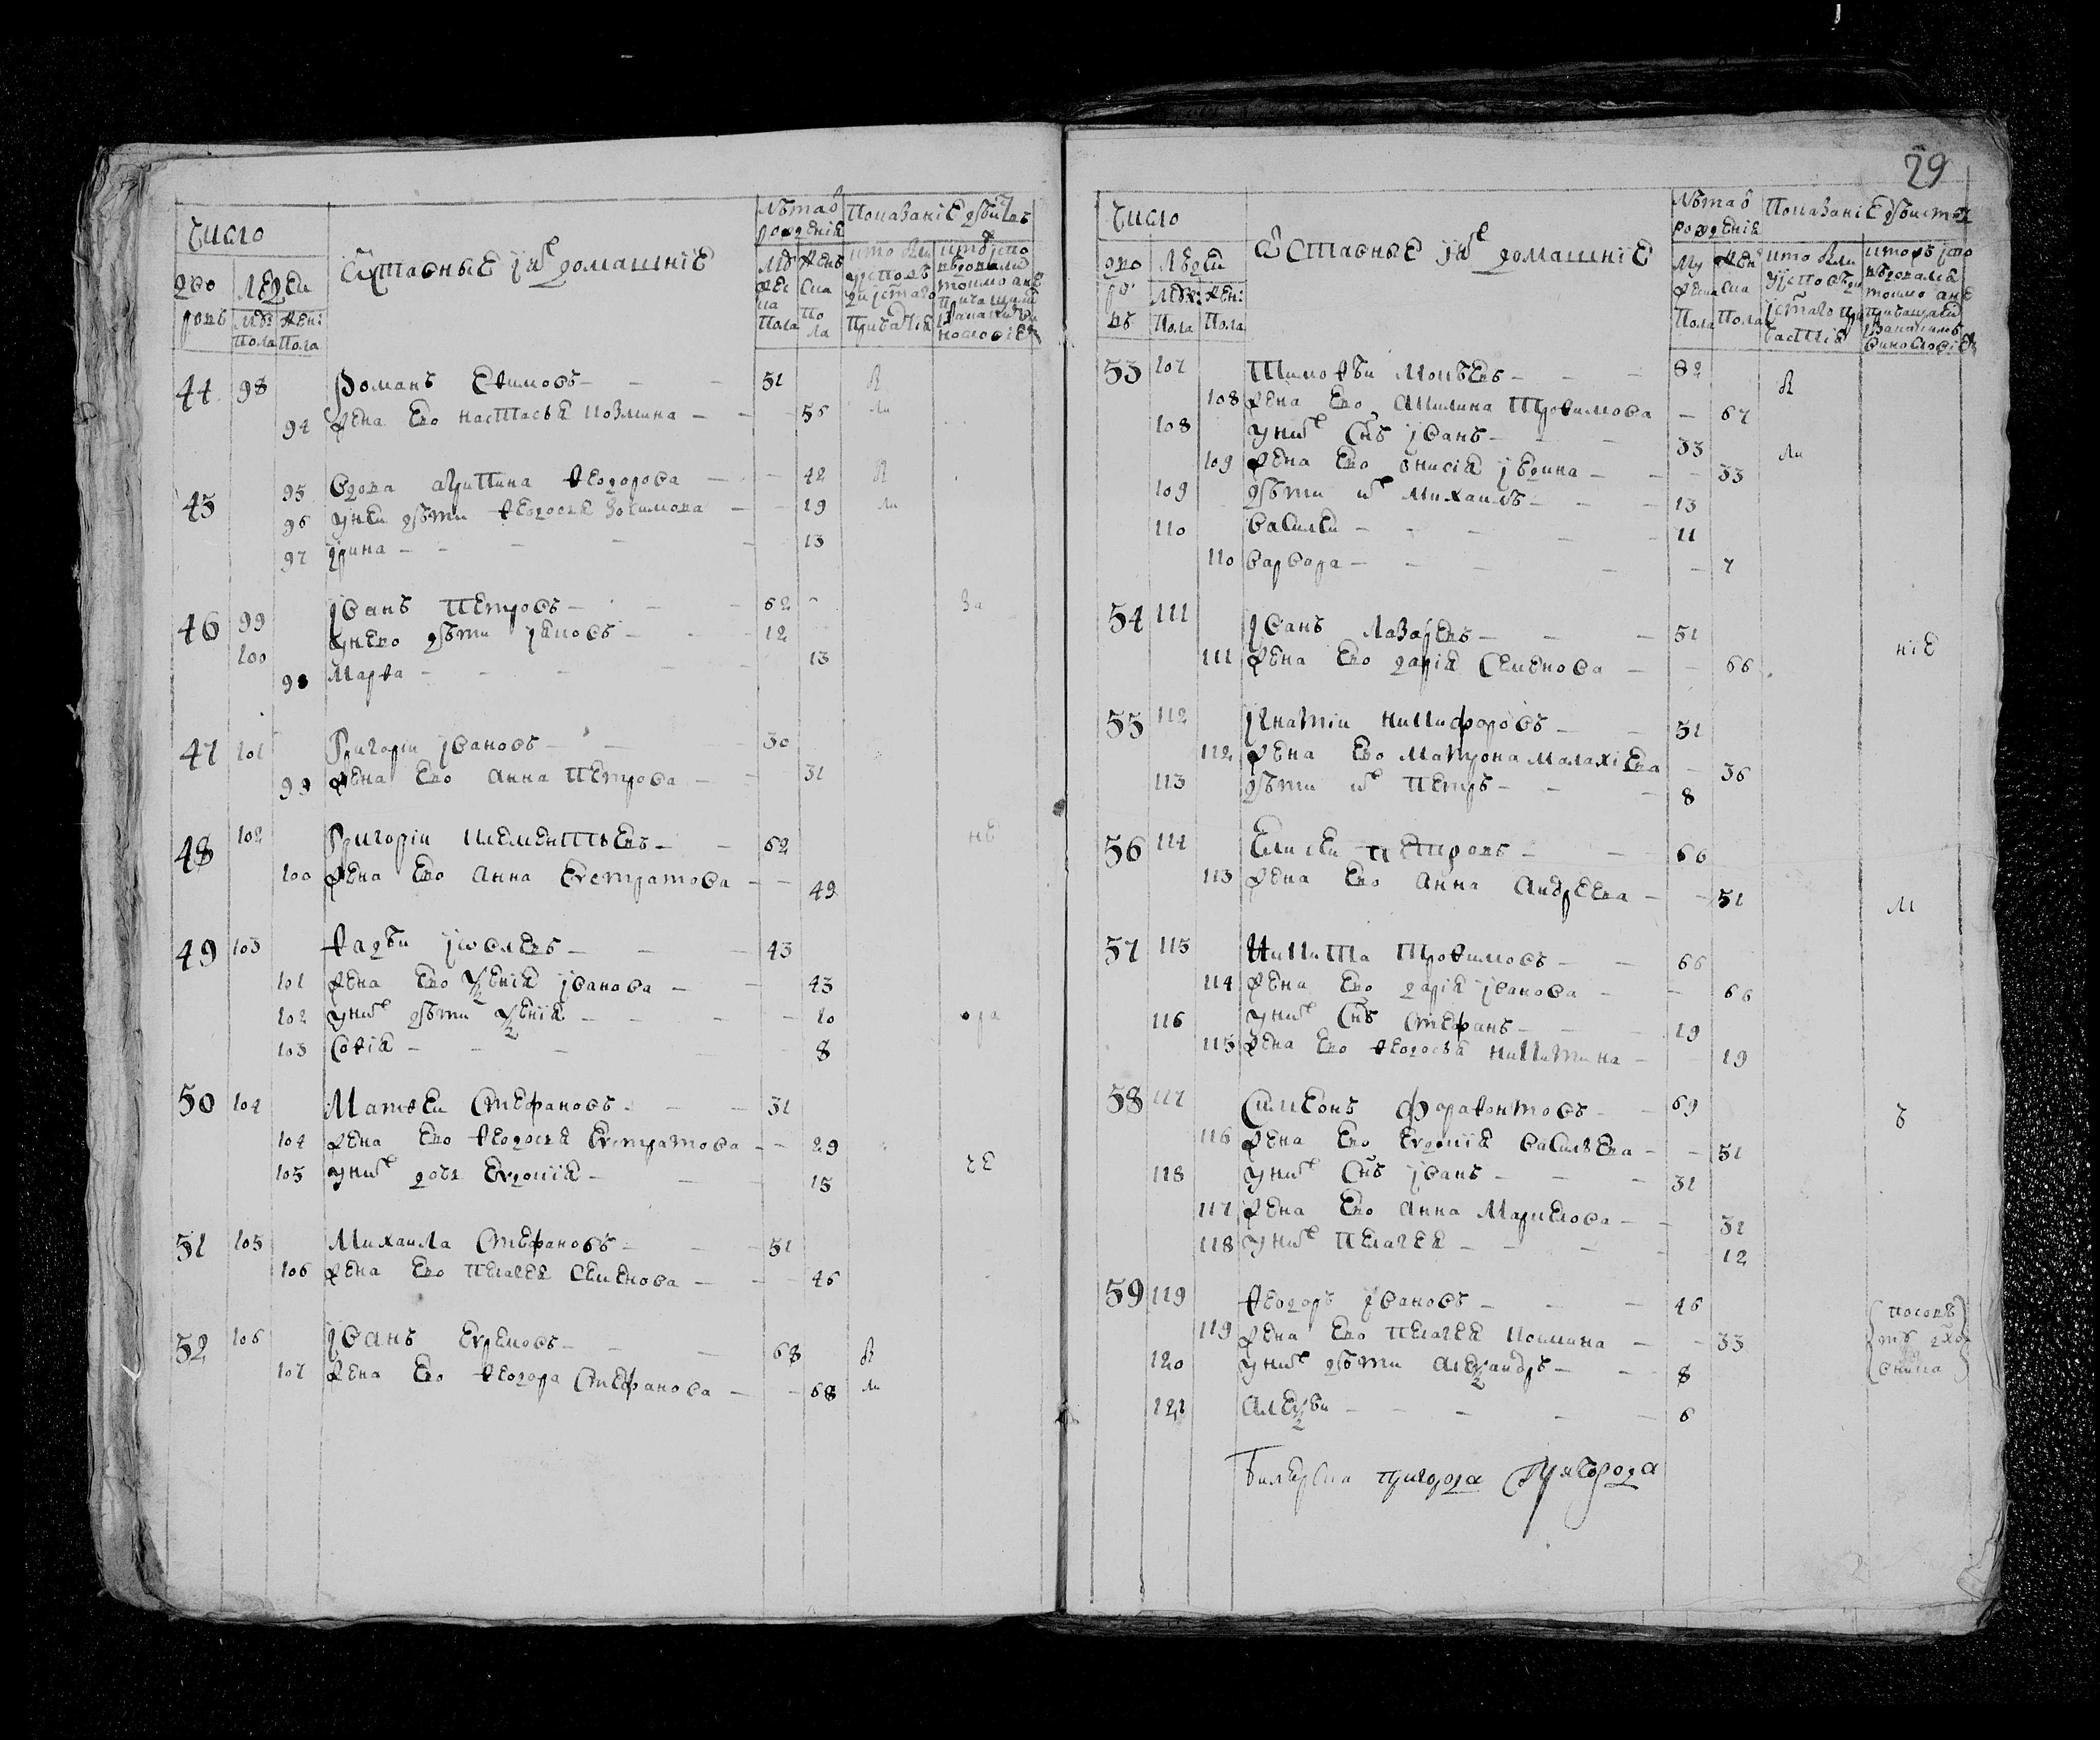 Число
Отставные и их домашние
Лѣта ѿ рожденiя
дво ровъ
Людеи
Муж: Пола
Жен: Пола
44 98 Романъ Ефимовъ — — — 51
94 Жена Ево Настасья Козмина — — 56
95 Вдова агрипина Ѳеодорова — — 42
45 96 у неи дѣти Ѳеодосья Зотимова — — 19
97 Ирина — — — — 13
46 99 Iванъ Петровъ — — — 62 За
100 у нево дѣти Iяковъ — — — 12
98 Марѳа — — — — 13
47 101 Григорiи Iвановъ — — — 30
99 Жена Ево Анна Петрова — — 31
48 102 Григорiи Клементьевъ — — 62 не
100 Жена Ево Анна Евстратова — — 49
49 103 Ѳадѣи Iовлевъ — — — 43
101 Жена Ево Ѯенiя Iванова — — 43
102 у них дѣти Ѯенiя — — — 10
103 Софiя — — — — 8
50 104 Матвеи Стефановъ — — 31
104 Жена Ево Ѳеодосья Евстратова — — 29
105 у них дочь Евдокiя — — — 15 че
51 105 Михаила Стефановъ — — 51
106 Жена Ево Пелагея Семенова — — 46
52 106 Iванъ Ефремовъ — — — 68 я
107 Жена Ево Ѳеодора Стефанова — — 68 ли
29
Число
Отставные и их домашнiе
Лѣта ѿ рожденiя
Показанiе дѣиствъ
53 107 Тимоѳѣи Мокѣевъ — — — 82 я
108 Жена Ево Акилина Трофимова — 67
108 у них Сынъ Iванъ — — — 33 ли
109 Жена Ево Анисiя Iвдина — — 33
109 дѣти их Михаилъ — — — 13
110 Василеи — — — — 11
110 Варвара — — — — 7
54 111 Iванъ Лазаревъ — — — 51
111 Жена Ево дарiя Семенова — — 66 нiе
55 112 Iгнатiи Никифоровъ — — 51
112 Жена Ево Матрона Малахiева — 36
113 дѣти их Петръ — — — 8
56 114 Елисеи Петровъ — — 66
113 Жена Ево Анна Андреева — — 51
57 115 Никита Трофимовъ — — 66
114 Жена Ево дарiя Iванова — — 66
116 у них Сынъ Стефанъ — — — 19
115 Жена Ево Ѳеодосья Никитина — — 19
58 117 Симеонъ Форафонтовъ — — 69
116 Жена Ево Евдокiя Васильева — — 51
118 у них Сынъ Iванъ — — — 31
117 Жена Ево Анна Маркелова — — 31
118 у них Пелагея — — — — 12
59 119 Ѳеодоръ Iвановъ — — — 46
119 Жена Ево Пелагея Кошкина — — 33
120 у них дѣти Алеѯандръ — — 8
121 Алеѯѣи — — — — 6
по совѣ ту духо вника
Билярска пригорода